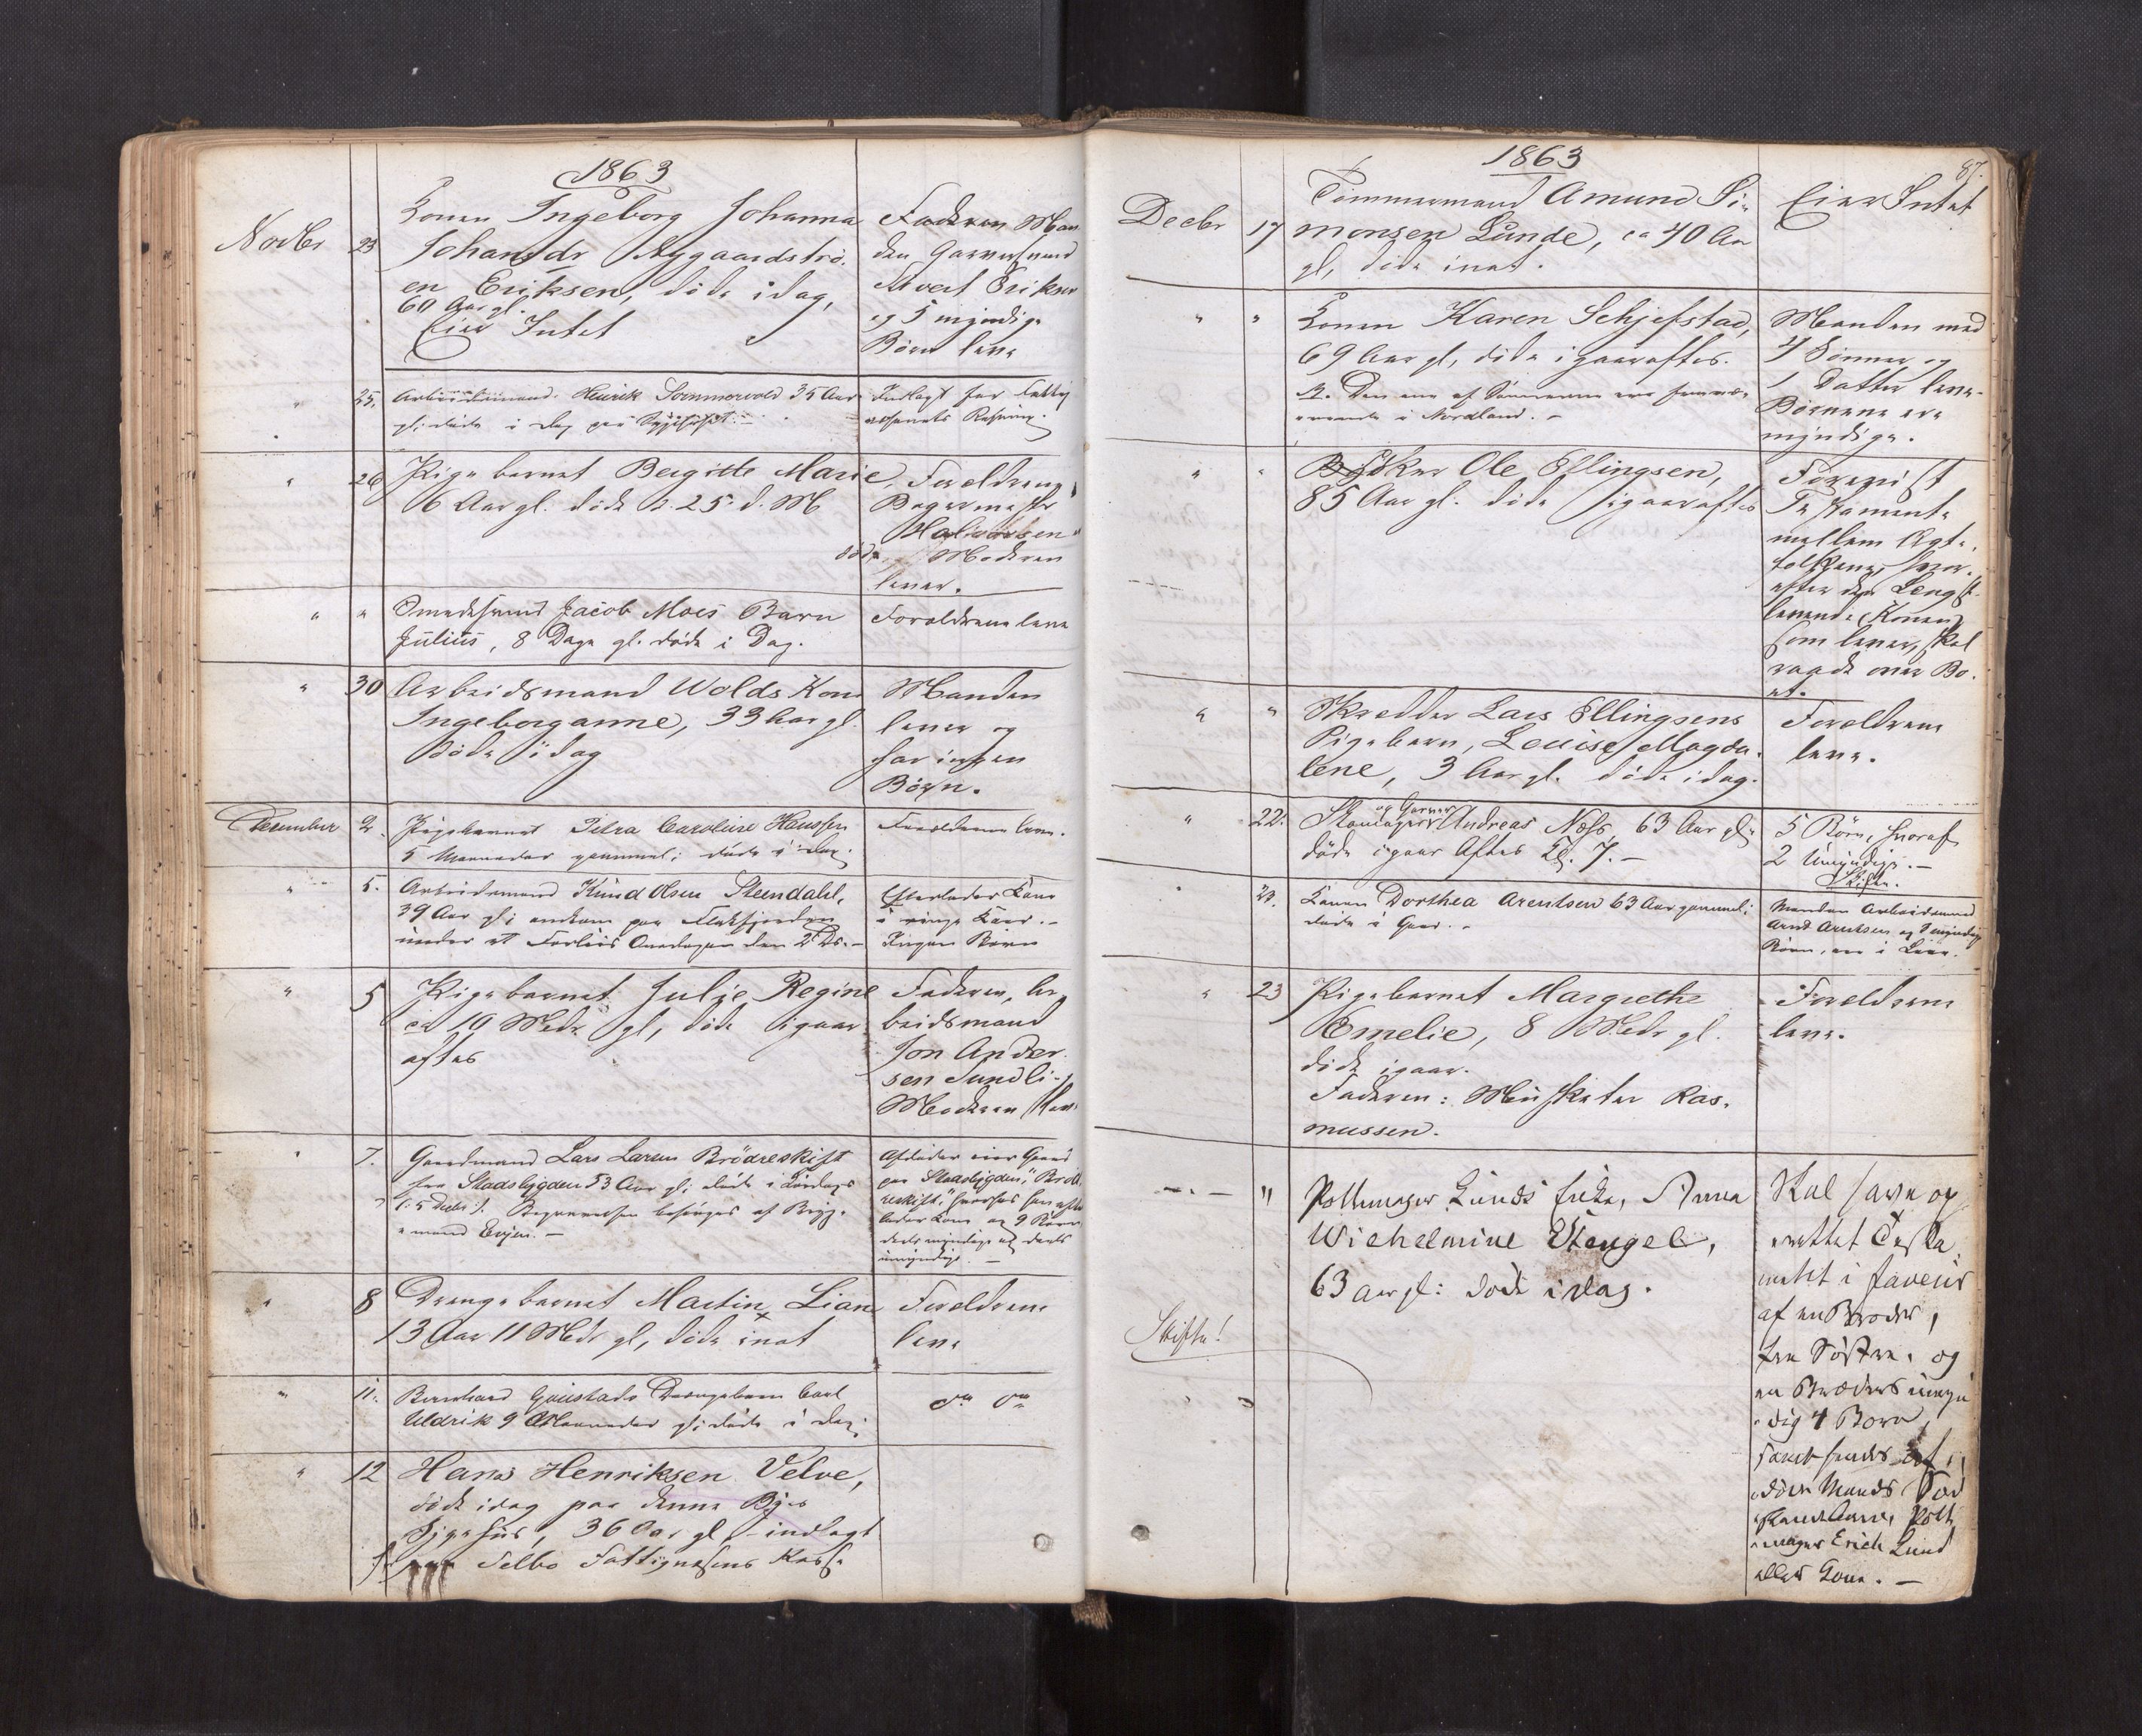 1863
Novbr 23 Konen Ingeborg Johanna
Johansdr Nygaardströ-
en Eriksen, døde idag,
60 Aar gl.
Eier Intet
Faderen Man
den Garversvend
Sivert Eriksen
og 5 myndige
Børn leve
" 25. Arbeidsmand Henrik Sommervold 35 Aar
gl: døde i Dag paa Sygehuset.
Indlagt for Fattig
væsenets Regning.
" 26 Pigebarnet Bergitte Marie,
6 Aar gl. døde d. 25 d. M
Foreldrene,
Bagermester
Halvorsen
død. Moderen
lever.
" " Smedesvend Jacob Moes Barn
Julius, 8 Dage gl. døde i Dag.
Forældrene leve
" 30 Arbeidsmand Wolds Kone
Ingeborganne, 33 Aar gl.
døde idag
Manden
lever og
har ingen
Børn.
December 2. Pigebarnet Petra Caroline Hanssen
5 Maaneder gammel; døde i Dag.
Forældrene leve.
" 5. Arbeidsmand Knud Olsen Steendahl,
39 Aar gl; omkom paa Flakfjorden
under et Forliis Onsdagen den 2 Ds.-
Efterlader Kone
i ringe Kaar.-
Ingen Børn
" 5 Pigebarnet Julie Regine
ca 10 Mdr gl, døde igaar
aftes
Faderen, Ar-
beidsmand
Jon Ander-
sen Sundli-
Moderen lev
" 7. Gaardmand Lars Larsen Brödreskift
fra Stadsbygden 53 Aar gl; døde i Lørdags
(: 5 Decbr :). Begravelsen besørges af Brygg-
mand Evjen. -
Afdøde eier Gaard
paa Stadsbygden, "Bröd-
reskift," hvorhos han efter
lader Kone og 9 Børn
deels myndige og deels
umyndige. -
" 8 Drengebarnet Martin Lian
13 Aar 11 Mdr gl, døde inat
Foreldrene
leve
" 11. Bernhard Gaustads Drengebarn Carl
Uldrik 9 Maaneder gl; døde i Dag.
do do
" 12 Hans Henriksen Velve,
døde idag paa denne Byes
Sygehus, 36 Aar gl, indlagt
for Selbo Fattigvæsens Kasse
1863
87.
Decbr 17 Tömmermand Amund Si-
monsen Lunde, ca 40 Aar
gl, døde inat.
Eier Intet
" " Konen Karen Schjefstad,
69 Aar gl, døde igaaraftes.
Den ene af Sønnerne ere fravæ-
rende i Nordland. -
Manden med
4 Sønner og
1 Datter leve-
Børnene ere
myndige.
" " Bödker Ole Ellingsen,
85 Aar gl. døde igaaraftes
Forevist
Testamente
mellem Ægte-
folkene, hvor-
efter den Længst-
levende (Konen)
som lever, skal
raade over Bo-
et.
" " Skredder Lars Ellingsens
Pigebarn, Louise Magda-
lene, 3 Aar gl. døde idag.
Foreldrene
leve.
" 22. og Garver
Skomager Andreas Næss, 63 Aar gl;
døde igaar Aftes Kl. 7. -
5 Børn, hvoraf
2 Umyndige. -
Skifte.
23. Konen Dorthea Arentsen 63 Aar gammel;
døde i Gaar. -
Manden Arbeidsmand
Arnt Arentsen og myndige
Børn, ere i Live.
" 23 Pigebarnet Margrethe
Emelie, 8 Mdr gl.
døde igaar.
Faderen: Musketer Ras-
mussen.
Foreldrene
leve.
-"- " Pottemager Lunds Enke, Anna
Wichelmine Stengel,
63 Aar gl: døde idag.
Skifte!
Skal have op
rettet Testa-
mentet i faveur
af en Broder,
fire Søstre, og
en Broders umyn
dig 4 Børn,
samt hendes af-
døde Mands
Pott-
mager Erich Lund
eller Kone. -